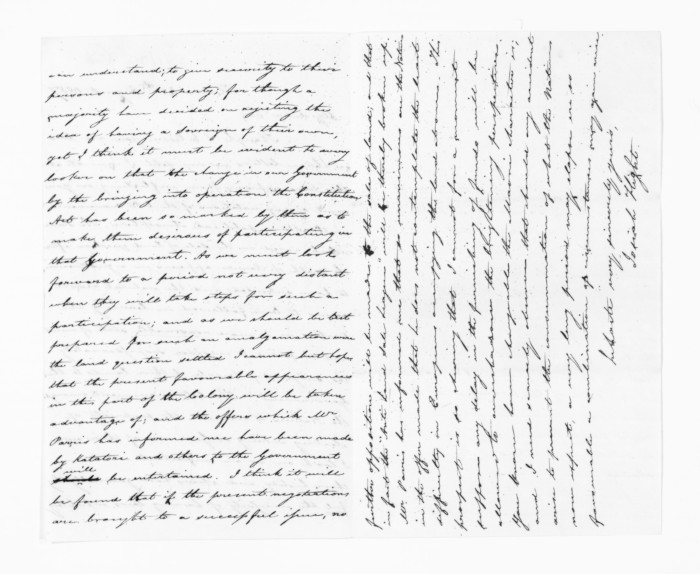 can understand; to give security to their
persons and property; for though a
majority have decided on rejecting the
idea of having a sovereign of their own,
yet I think it must be evident to any
looker on that the change in our Government
by the bringing into operation the Constitution
Act has been so marked by them as to
make them desirous of participating in
that Government. As we must look
forward to a period not very distant
when they will take steps for such a
participation; and as we should be best
prepared for such an amalgamation were
the land question settled I cannot but hope
that the present favourable appearances
in this part of the Colony will be taken
advantage of; and the offers which Mr.
Parris has informed me have been made
by Katatore and others to the Government
will be entertained. I think it will
be found that if the present negotiations
are brought to a successful issue, no
further opposition will be made to the sale of land; and that
in fact the "anti land sale league" will be thereby broken up.
Mr. Parris has informed me that so unanimous are the Natives
in the offer made that he does not contemplate the least
difficulty in Europeans occupying the land so soon. This
prospect is so cheering that I cannot for a moment
suppose any delay in the furnishing of funds will be
allowed to overshadow the brightening perspective.
You know how changeable the native character is;
and I need scarcely observe that should any accident
arise to prevent the consummation of what the Natives
now expect, a very long period may elapse ere so
favourable a combination of circumstances may again arise
Isharter very sincerely yours,
Josiah Flight.